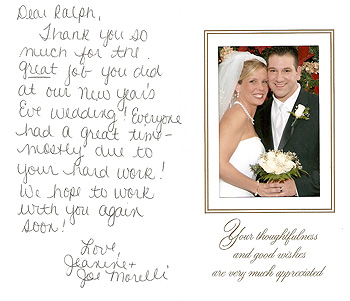 Dear Ralph,
Thank you so
much for the
great job you did
at our new year's
Eve wedding! Everyone
had a great time-
mostly due to
your hard work!
We hope to work
with you again
soon!
Love,
Jeanine +
Joe Morelli
Your thoughtfulness
and good wishes
are very much appreciated